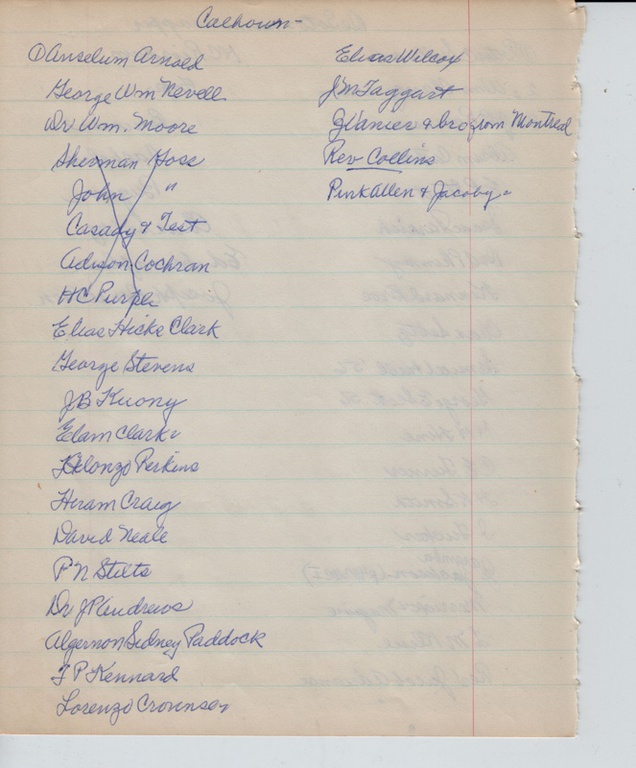 Calhoun-
D Anselum Arnold
George Wm Nevell
Dr Wm. Moore
Sherman Goss
John "
Casady & Test
Adison Cochran
HC Purple
Elias Hicks Clark
George Stevens
JB Kuony
Elam Clark
Alonzo Perkins
Hiram Craig
David Neale
P N Stilts
Dr JP Andrews
Algernon Sidney Paddock
T P Kennard
Lorenzo Crounse
Elias Wilcox
J M Taggart
J Vanier & bro from Montreal
Rev Collins
Pink Allen & Jacoby